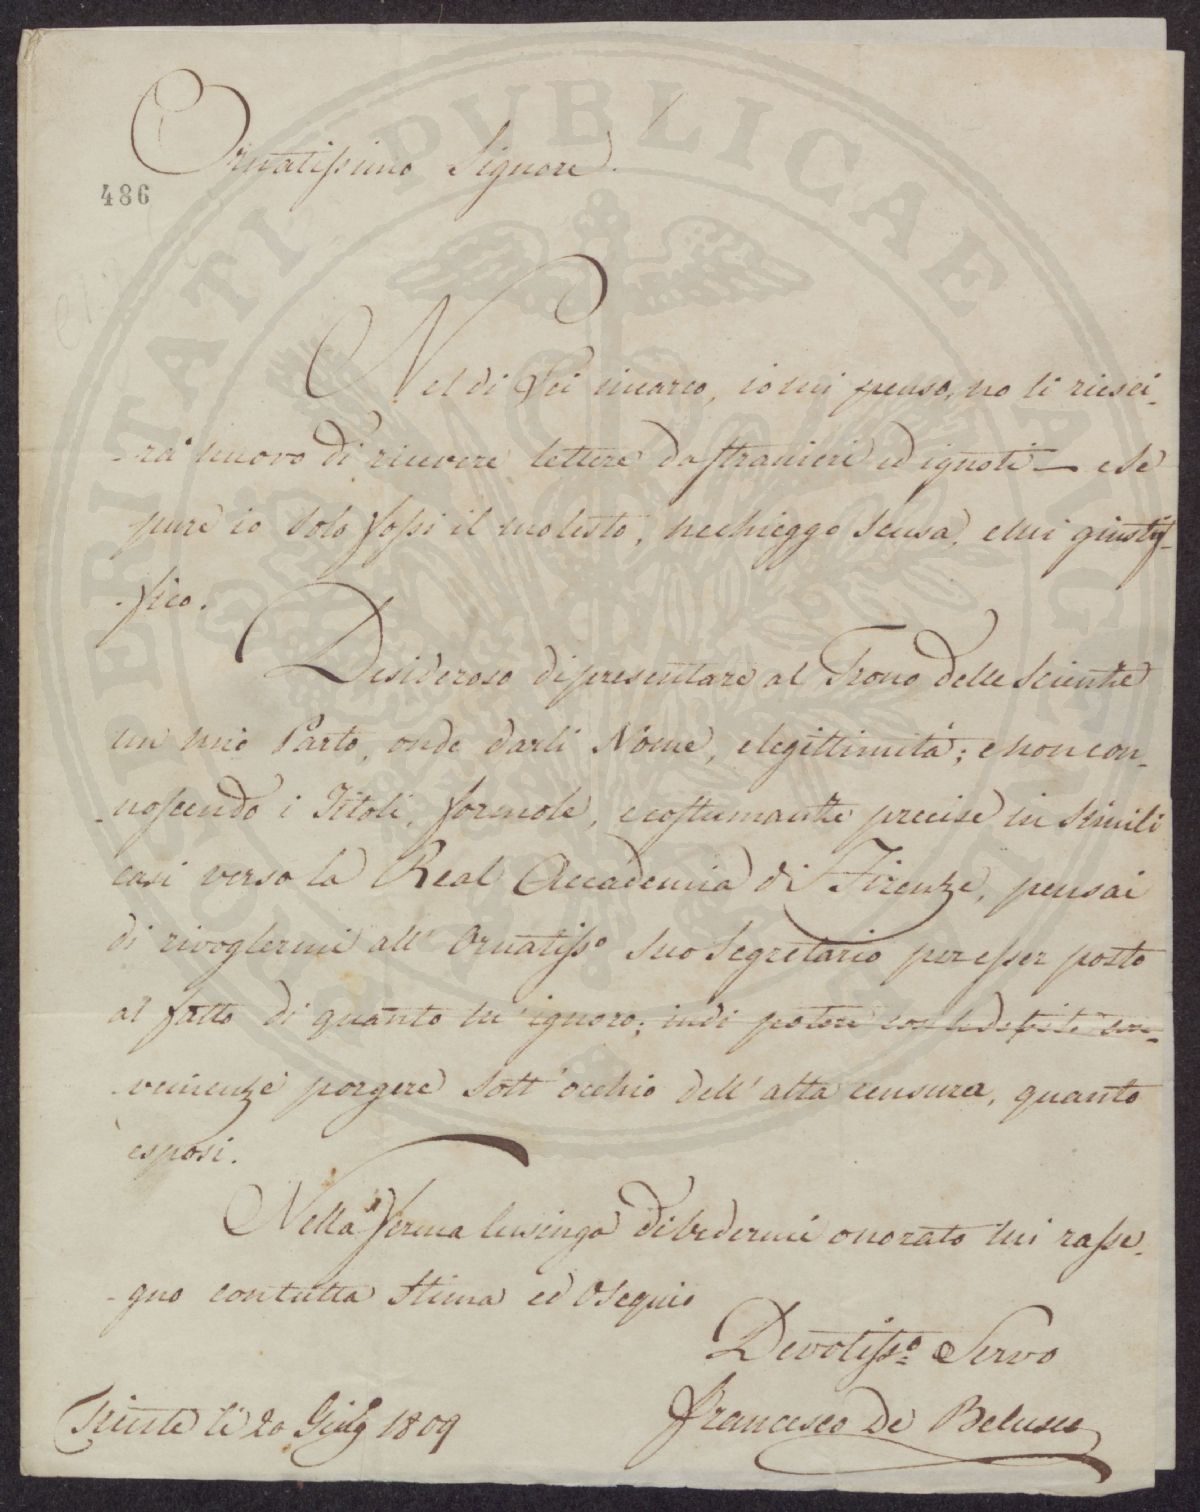 Ornatissimo Signore.
486
Nel di Lei incarco, io mi penso, no li riesci-
-rà nuovo di ricevere lettere da stranieri ed ignoti — e se
pure io solo fossi il molesto, ne chieggo scusa, e mi giusti-
-fico.
Desideroso di presentare al Trono delle Scienze
un mio Parto, onde darli Nome, e legittimità; e non con-
-noscendo i Titoli, formole, e costumanze precise in simili
casi verso la Real Accademia di Firenze, pensai
di rivoglermi all' Ornatisso suo Segretario per esser posto
al fatto di quanto m' ignoro; indi potere con le debite con-
-venienze porgere sott' occhio dell' alta censura, quanto
esposi.
Nella ferma lusinga di vedermi onorato mi rasse-
-gno con tutta stima ed Osequio
Devotisso Servo
Francesco De
li 20 1809
PERITATI PVBLICAE